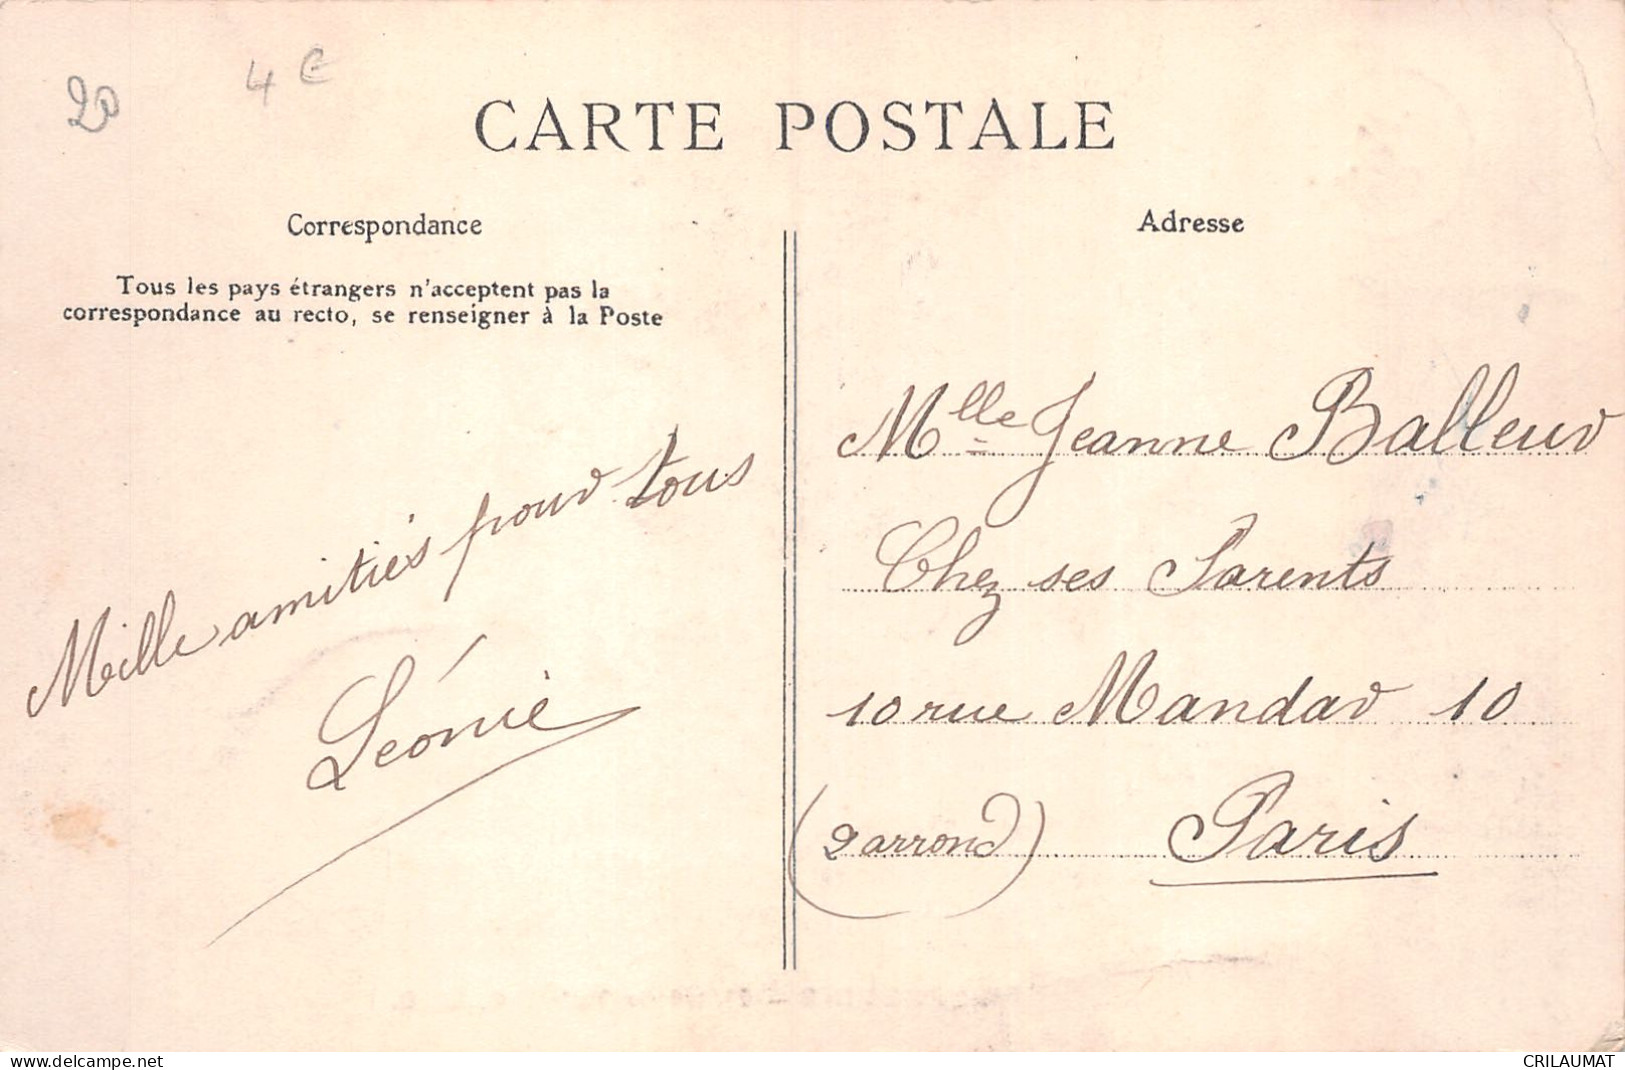 20
4 €
CARTE POSTALE
Correspondance
Tous les pays étrangers n'acceptent pas la
correspondance au recto, se renseigner à la Poste
Mille amitiés pour tous
Léonie
Adresse
Mlle Jeanne Balleur
Chez ses Parents
10 rue Mandar 10
(2 arrond) Paris
www.delcampe.net
CRILAUMAT